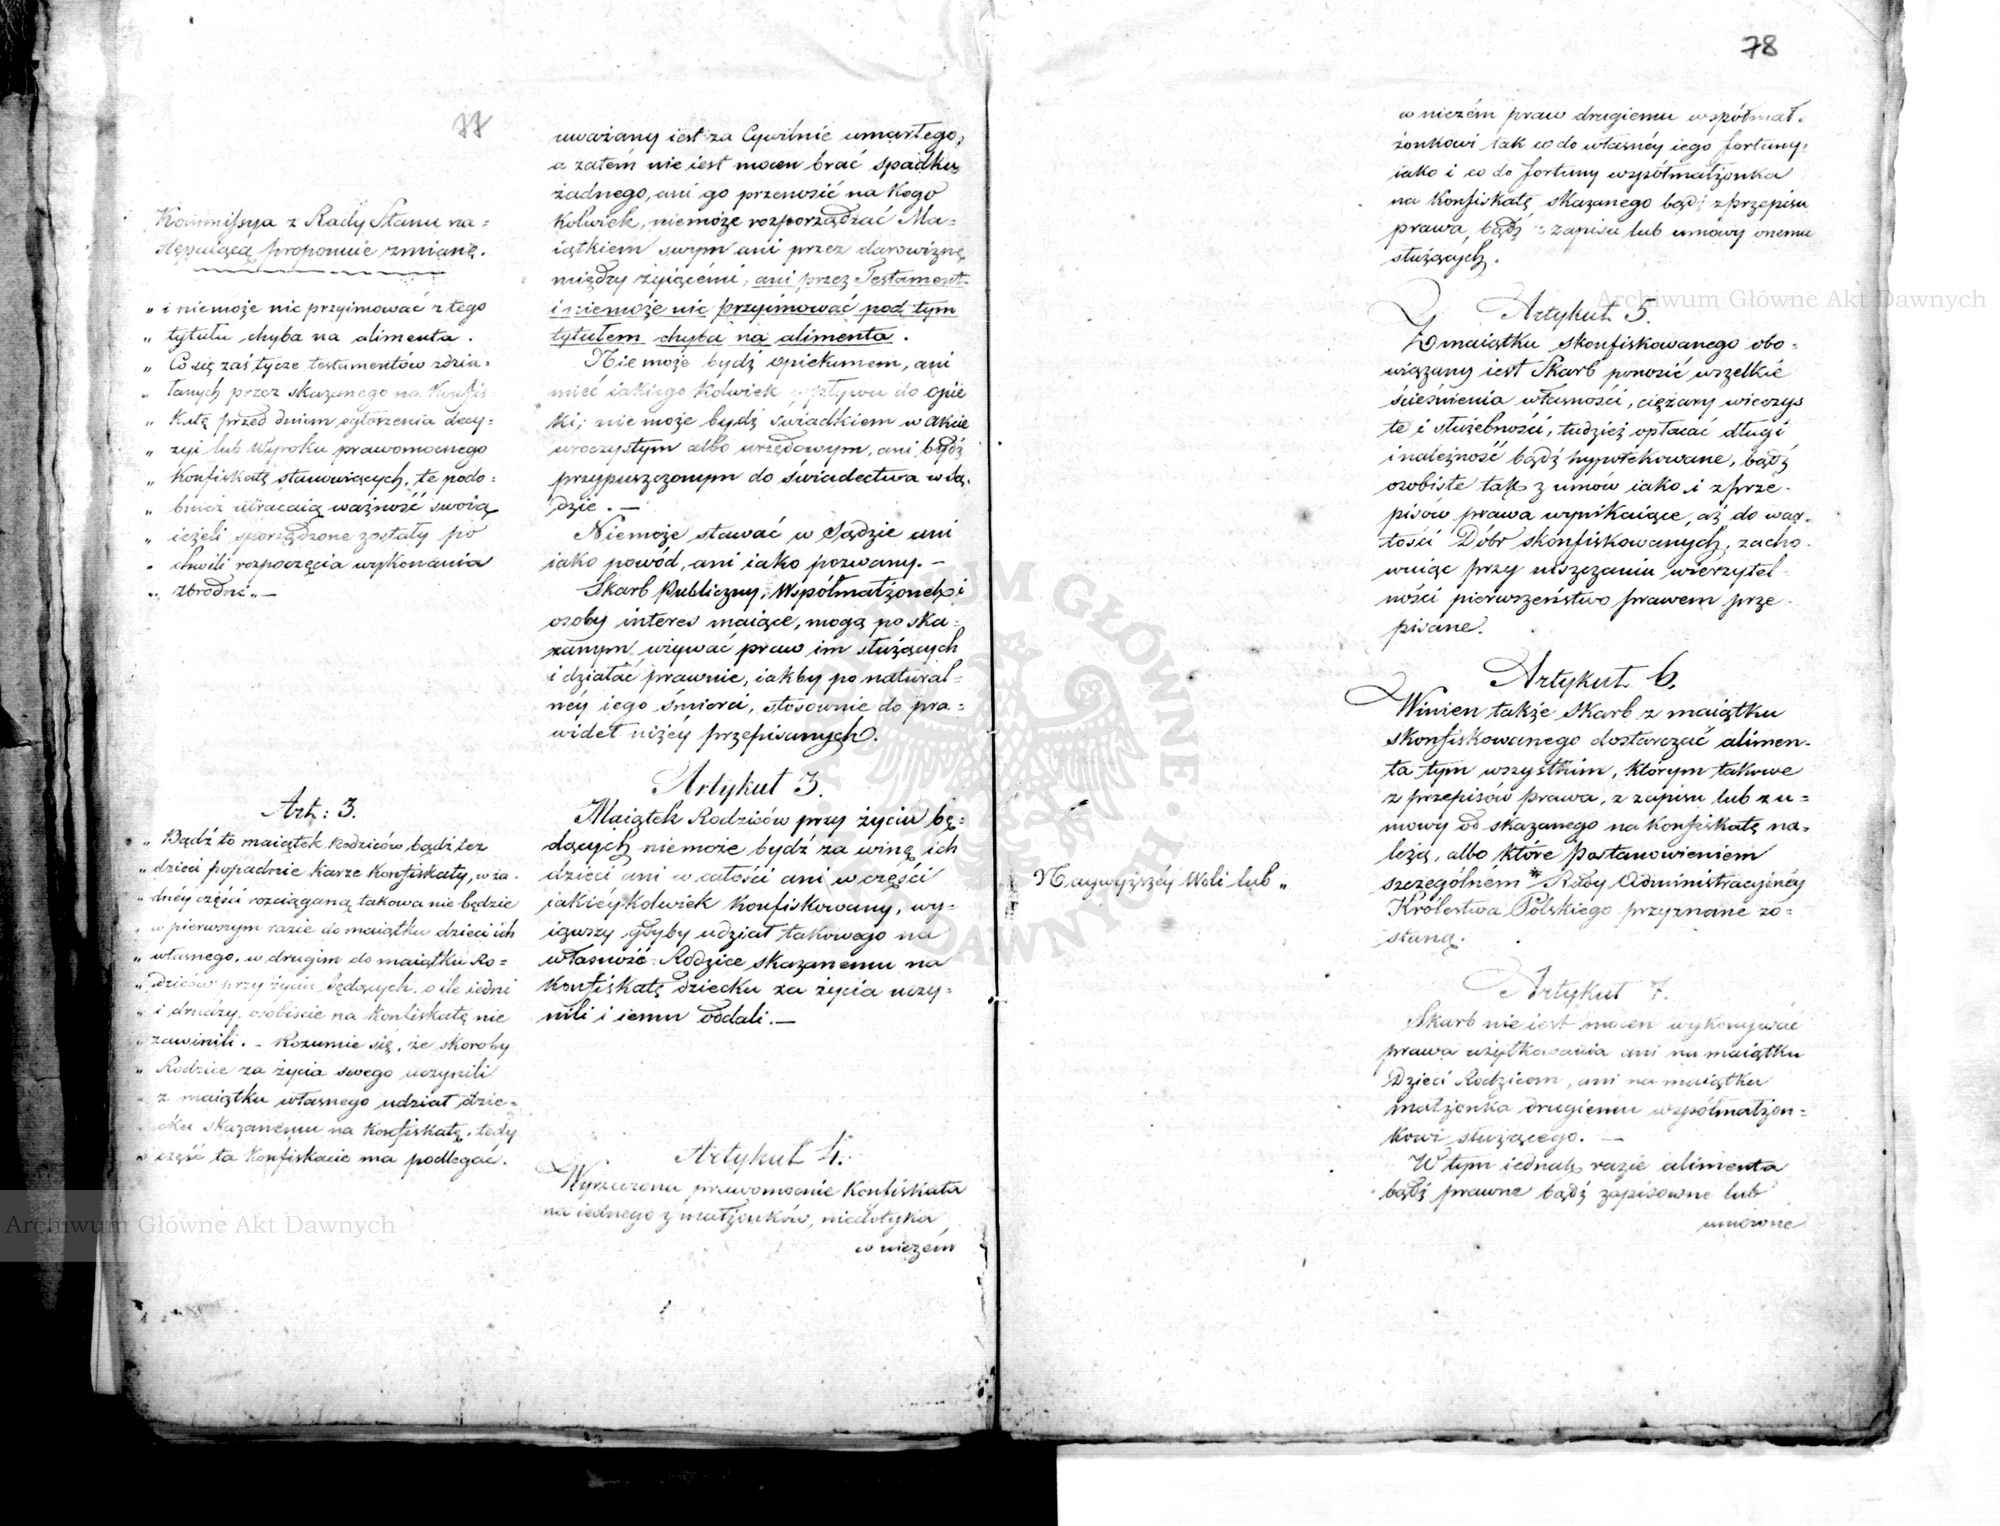 77
Kommissya z Rady Stanu na=
stępuiącą proponuie zmianę.
„ i niemoże nic przyimować z tego
„ tytułu chyba na alimenta.
„ Co się zaś tycze testamentów zdzia=
„ łanych przez skazanego na Konfis=
„ Katę przed dniem ogłoszenia decy=
„ zyi lub Wyroku prawomocnego
„ Konfiskatę stanowiących, te podo=
„ bnież utracaią ważność swoią
„ ieżeli sporządzone zostały po
„ chwili rozpoczęcia wykonania
„ zbrodni „ —
Art: 3.
„ Bądź to maiątek Rodziców bądź tez
„ dzieci popadnie karze Konfiskaty, w ża=
„ dnéy części rozciąganą takowa nie będzie
„ w pierwszym razie do maiątku dzieci ich
„ własnego, w drugim do maiątku Ro=
„ dziców przy życiu będących, o ile iedni
„ i drudzy, osobiście na Konfiskatę nie
„ zawinili. — Rozumie się, że skoroby
„ Rodzice za życia swego uczynili
„ z maiątku własnego udział dzie=
„ cku skazanemu na Konfiskatę, tedy
„ część ta Konfiskacie ma podlegać.
uważany iest za Cywilnie umarłego,
a zatém nie iest mocen brać spadku
żadnego, ani go przenosić na Kogo
Kolwiek, niemoże rozporządzać Ma=
iątkiem swym ani przez darowiznę
między żyiącémi, ani przez Testament
i niemoże nic przyimować pod tym
tytułem chyba na alimenta.
Nie może bydź opiekunem, ani
mieć iakiego Kolwiek wpływu do opie
ki; nie może bydź świadkiem w akcie
uroczystym albo urzędowym, ani bydź
przypuszczonym do świadectwa w Są=
dzie. —
Niemoże stawać w Sądzie ani
iako powód, ani iako pozwany. —
Skarb Publiczny, Współmałżonek i
osoby interes maiące, mogą po ska=
zanym używać praw im służących
i działać prawnie, iakby po natural=
néy iego śmierci, stosownie do pra=
wideł niżéy przepisanych.
Artykuł 3.
Maiątek Rodziców przy życiu bę=
dących niemoże bydź za winę ich
dzieci ani w całości ani w części
iakieykolwiek Konfiskowany, wy=
iąwszy gdyby udział takowego na
własność Rodzice skazanemu na
Konfiskatę dziecku za życia uczy=
nili i iemu oddali. —
Artykuł 4.
Wyrzeczona prawomocnie Konfiskata
na iednego z małżonków, niedotyka
w niczém
78
w niczém praw drugiemu współmał=
żonkowi tak co do własnéy iego fortuny,
iako i co do fortuny współmałżonka
na Konfiskatę skazanego bądź z przepisu
prawa, bądź z zapisu lub umowy onemu
służących.
Artykuł 5.
Z maiątku skonfiskowanego obo=
wiązany iest Skarb ponosić wszelkie
ścieśnienia własności, ciężary wieczys
te i służebności, tudzież opłacać długi
i należność bądź hypotekowane, bądź
osobiste tak z umów iako i z prze=
pisów prawa wynikaiące, aż do war=
tości Dóbr skonfiskowanych, zacho=
wuiąc przy uiszczaniu wierzytel=
ności pierwszeństwo prawem prze=
pisane.
Artykuł 6.
Winien także Skarb z maiątku
skonfiskowanego dostarczać alimen=
ta tym wszystkim, którym takowe
z przepisów Prawa, z zapisu lub z u=
mowy od skazanego na Konfiskatę na=
leżą, albo które Postanowieniem
szczególném * Rady Administracyinéy
Królestwa Polskiego przyznane zo=
staną.
Naywyższéy Woli lub „
Artykuł 7.
Skarb nie iest mocen wykonywać
prawa użytkowania ani na maiątku
Dzieci Rodzicom, ani na maiątku
małżonka drugiemu współmałżon=
kowi służącego. —
W tym iednak razie alimenta
bądź prawne bądź zapisowne lub
umówione
Archiwum Główne Akt Dawnych
Archiwum Główne Akt Dawnych
ARCHIWUM GŁÓWNE AKT DAWNYCH